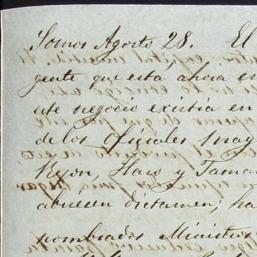 Somos Agosto 28. El
gente que esta ahora en
este negocio existia en
de los oficiales may
Ryon, Haro y Tama
abriesen dictamen; ha
nombrados Ministros